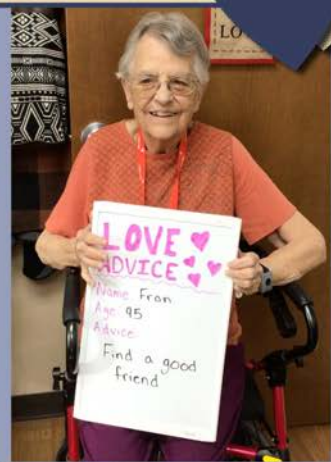 LO
LOVE
ADVICE
Name: Fran
Age: 95
Advice:
Find a good
friend